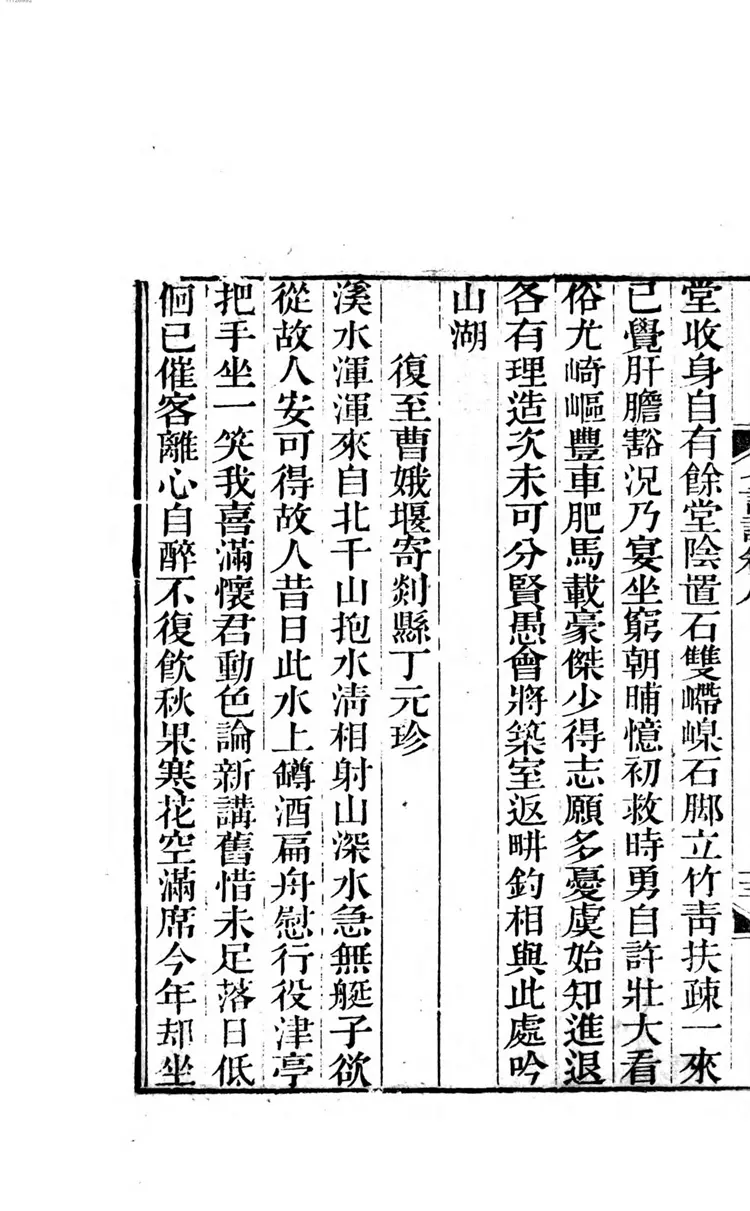 堂收身自有餘堂陰置石雙嶙嵲石脚立竹靑扶疎一來
已覺肝膽豁況乃宴坐窮朝晡憶初救時勇自許壯大看
俗尤崎嶇豐車肥馬載豪傑少得志願多憂虞始知進退
各有理造次未可分賢愚會將築室返畊釣相與此處吟
山湖
復至曹娥堰寄剡縣丁元珍
溪水渾渾來自北千山抱水淸相射山深水急無艇子欲
從故人安可得故人昔日此水上罇酒扁舟慰行役津亭
把手坐一笑我喜滿懷君動色論新講舊惜未足落日低
徊已催客離心自醉不復飮秋果寒花空滿席今年却坐